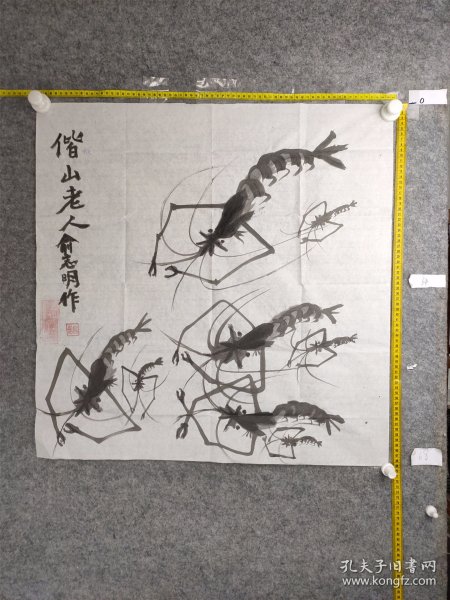 偕山老人俞志明作
0
孔夫子旧书网
www.kongfz.com